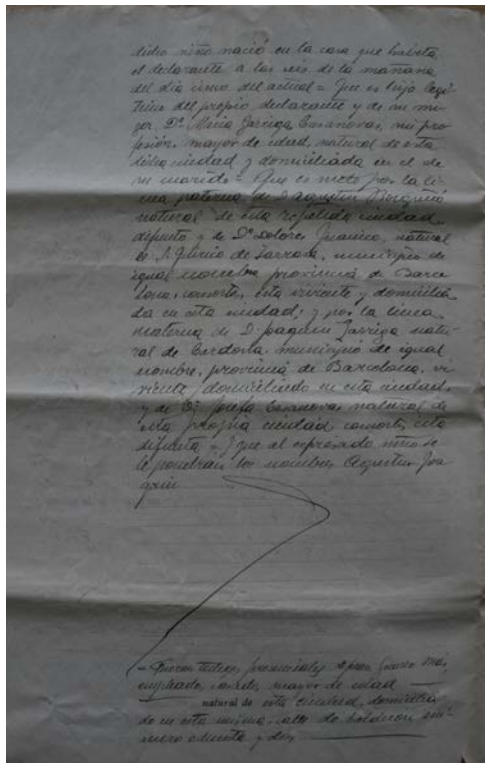 dicho niño nació en la casa que habita
el declarante a las seis de la mañana
del día cinco del actual = Que es hijo legí-
timo del propio declarante y de su mu-
jer, Dª María Garriga Casanovas, sin pro-
fesión, mayor de edad, natural de esta
dicha ciudad y domiciliada en el de
su marido = Que es nieto por la lí-
nea paterna de D Agustín
natural de esta repetida ciudad,
difunto y de Dª Dolores natural
de S. Julián de municipio de
igual nombre provincia de Barce
lona, consorte, esta viviente y domicilia
da en esta ciudad; y por la línea
materna de D. Joaquín Garriga natu-
ral de Cardona, municipio de igual
nombre, provincia de Barcelona, vi
viente, domiciliado en esta ciudad,
y de Dª Josefa Casanovas natural de
esta propia ciudad consorte, esta
difunta = Y que al expresado niño se
le pondrán los nombres Agustín Joa
quín
= Fueron testigos presenciales
empleado, casado, mayor de edad
natural de esta ciudad, domicilia
do en esta misma, calle de nú-
mero ochenta y dos